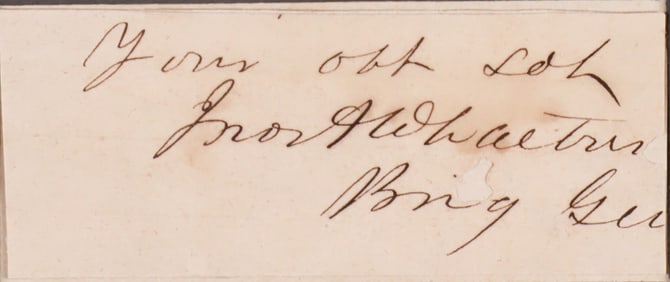 Your obt sdt
Jno A Whaeton
Brig Gen